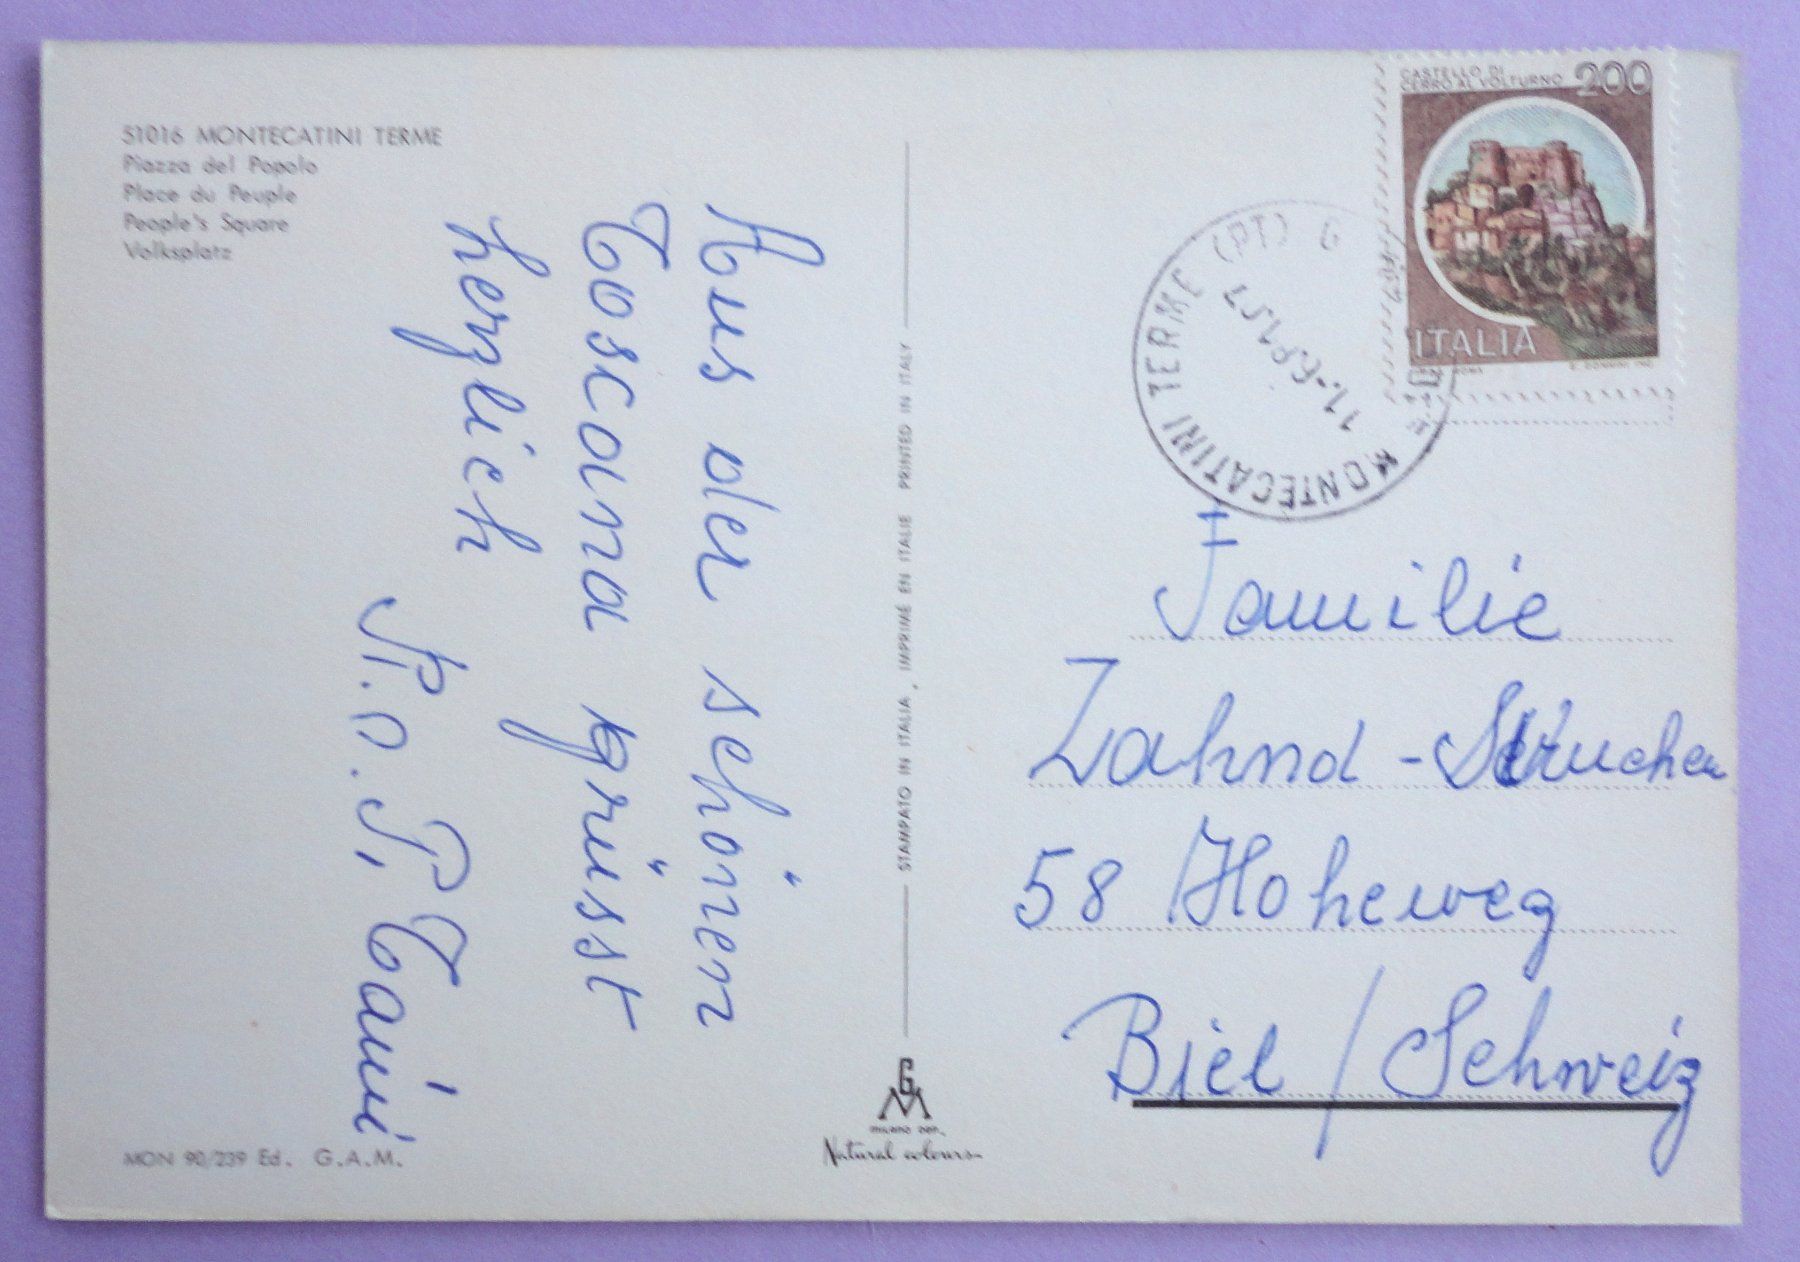 51016 MONTECATINI TERME
Piazza del Popolo
Place du Peuple
People's Square
Volksplatz
Aus der schönen
Toscana grüsst
herzlich
P. Tami
MON 90/239 Ed. G.A.M.
STAMPATO IN ITALIA, IMPRIMÉ EN ITALIE PRINTED IN ITALY
GM
MILANO DEP.
Natural colours
CASTELLO DI
CERRO AL VOLTURNO 200
ITALIA
MONTECATINI TERME (PT)
Familie
Zahnd -
58 Höheweg
Biel / Schweiz